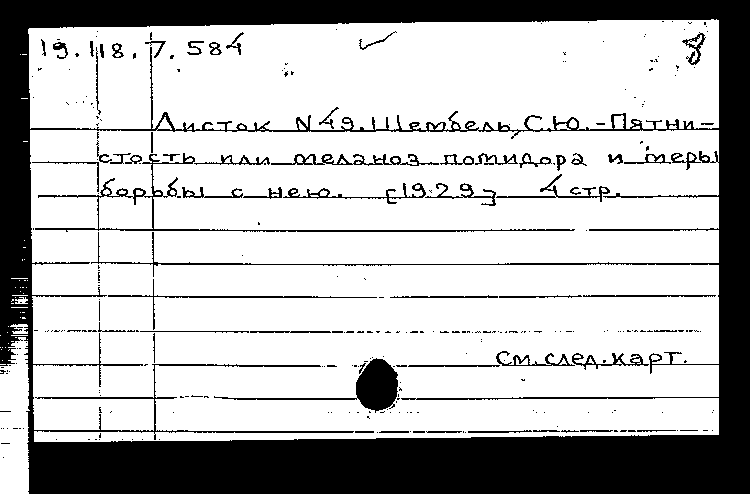 19.118.7.584 8
Листок N 49. Шембель, С.Ю.-Пятни-
стость или меланоз помидора и меры
борьбы с нею. [1929] 4 стр.
См. след. карт.